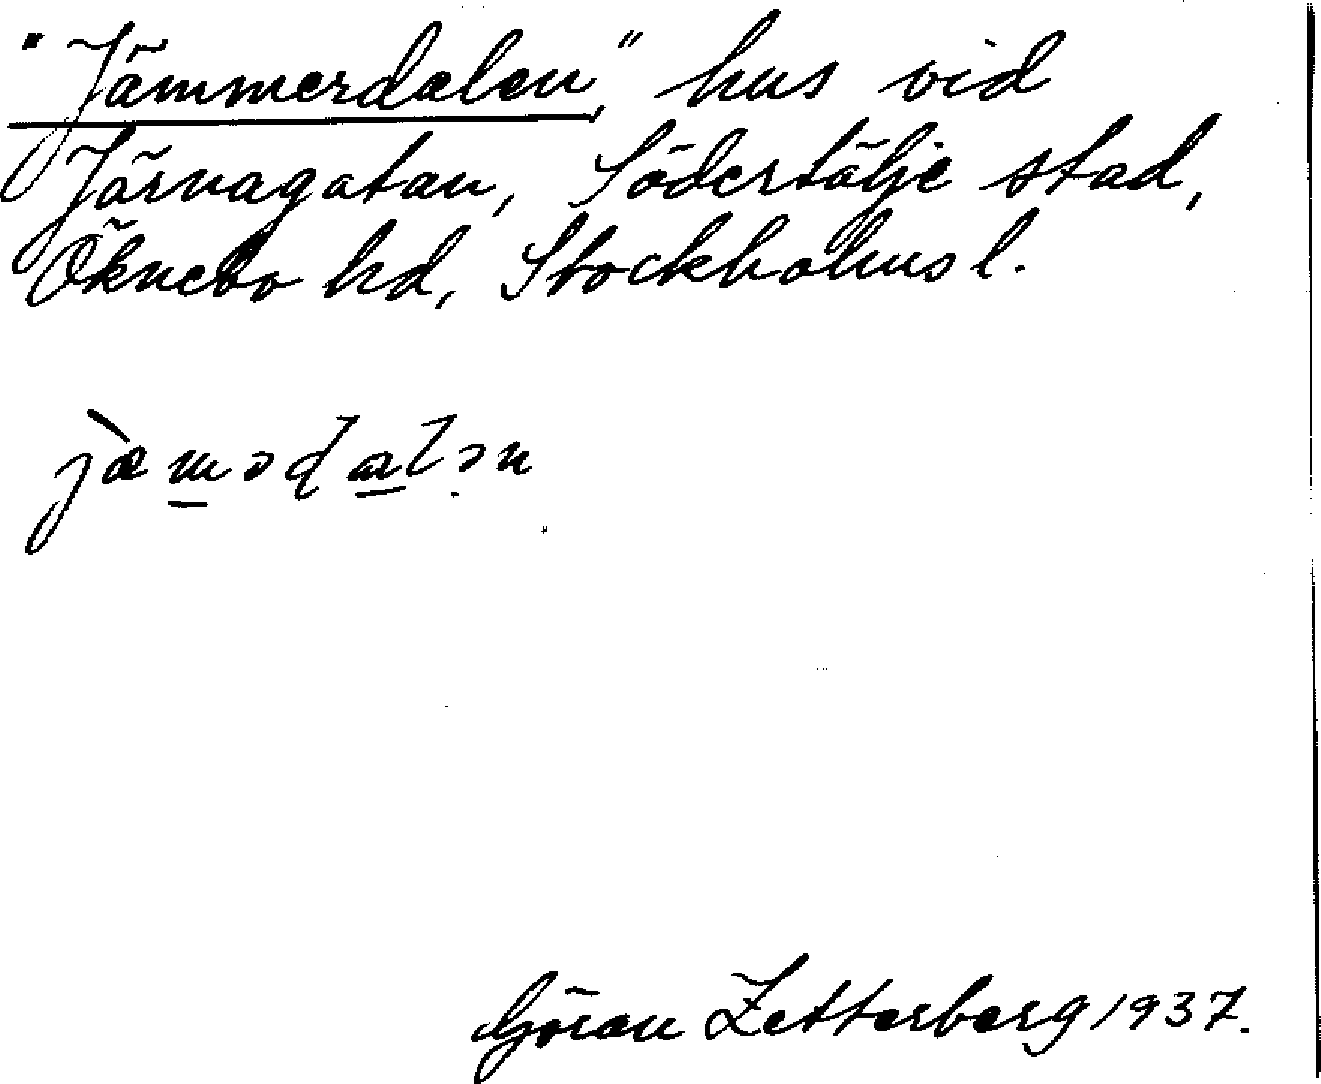 "Jämmerdalen," hus vid
Järnagatan, Södertälje stad,
Öknebo hd, Stockholms l.
jæ̀m̲əɖa̲lən
Göran Zetterberg 1937.